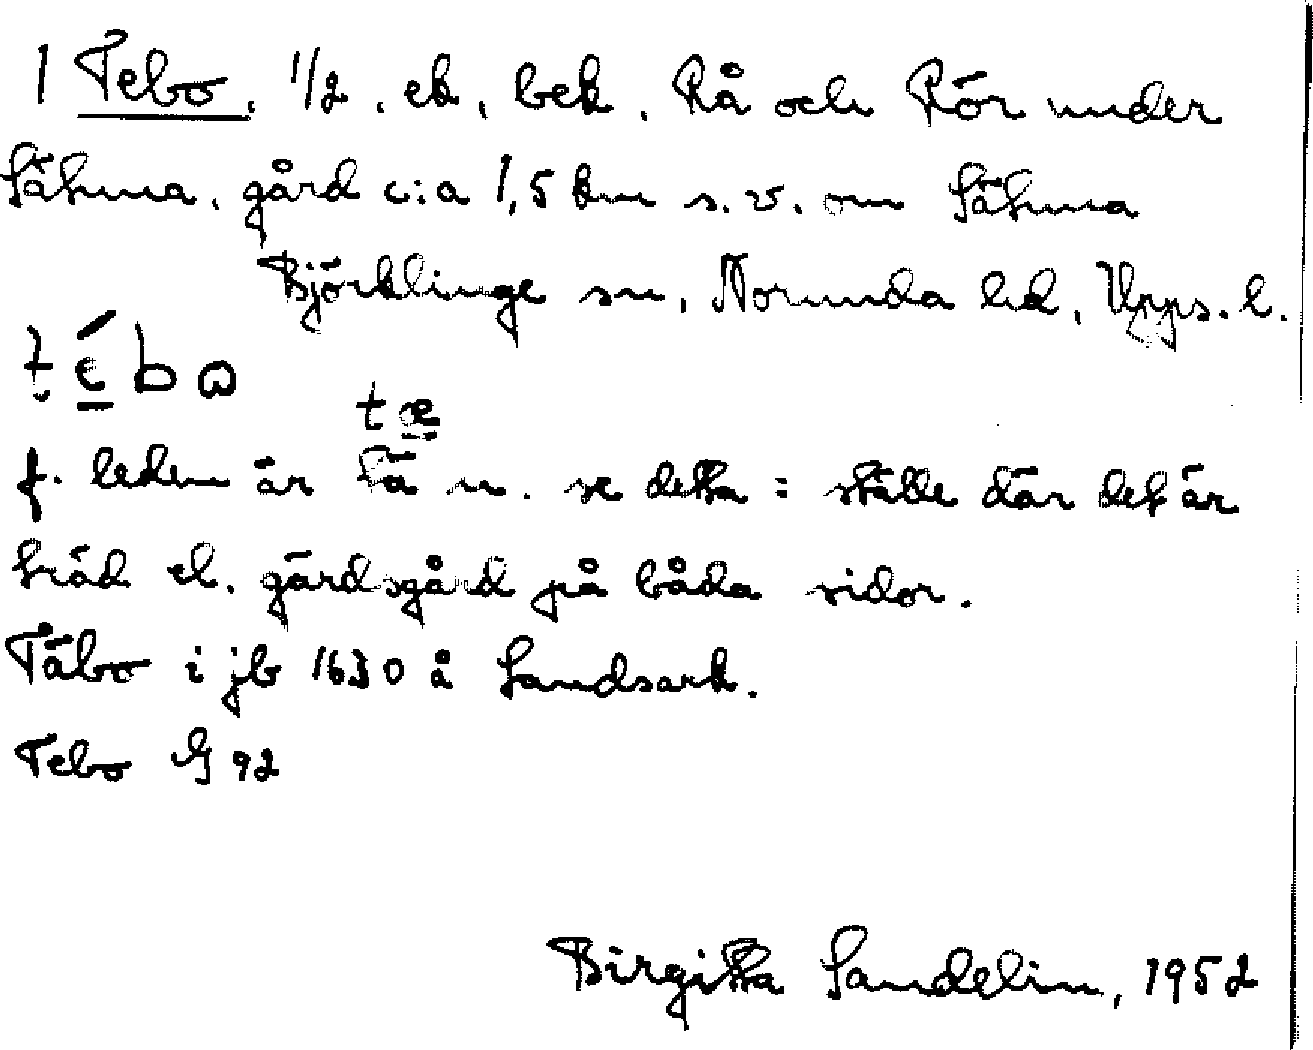 1 Tebo. 1/2. ek, bek. Rå och Rör under
Sätuna. gård c:a 1,5 km s.v. om Sätuna
Björklinge sn, Norunda hd, Upps. l.
t é b ω
t æ
f. leden är Tä n. se detta : ställe där det är
träd el. gärdsgård på båda sidor.
Täbo i jb 1630 å Landsark.
Tebo G 92
Birgitta Sandelin, 1952